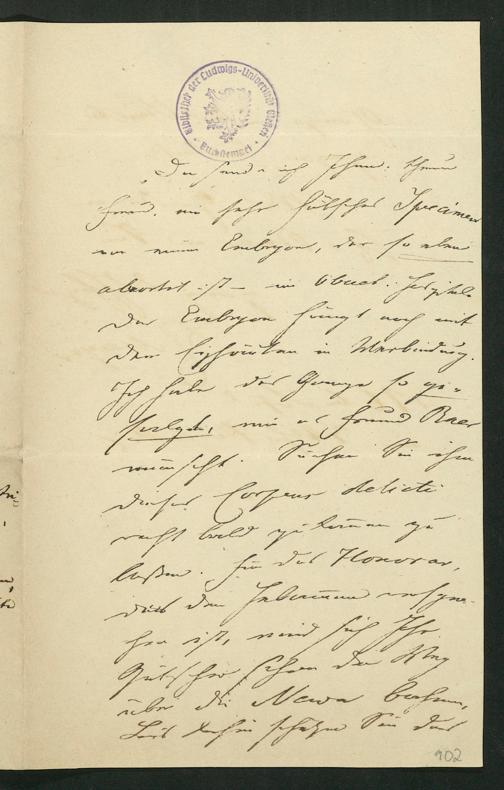 Bibliothek der Ludwigs-Universität Gießen
Da sende ich Ihnen, theurer
Freund, ein sehr hübsches Specimen
von einem Embryon, der so eben
abortirt ist – im Obuch. Hospitale
Der Embryon hängt noch mit
den Eihäuten in Verbindung.
Ich habe das Ganze so
wie es Freund Baer
wünscht. Suchen Sie ihm
dieses Corpus delicti
recht bald zukommen zu
lassen. Für das Honorar,
das den Hebammen verspro-
chen ist, wird sich Ihr
schon den Weg
über die Newa bahnen,
Bis dahin Sie das
102